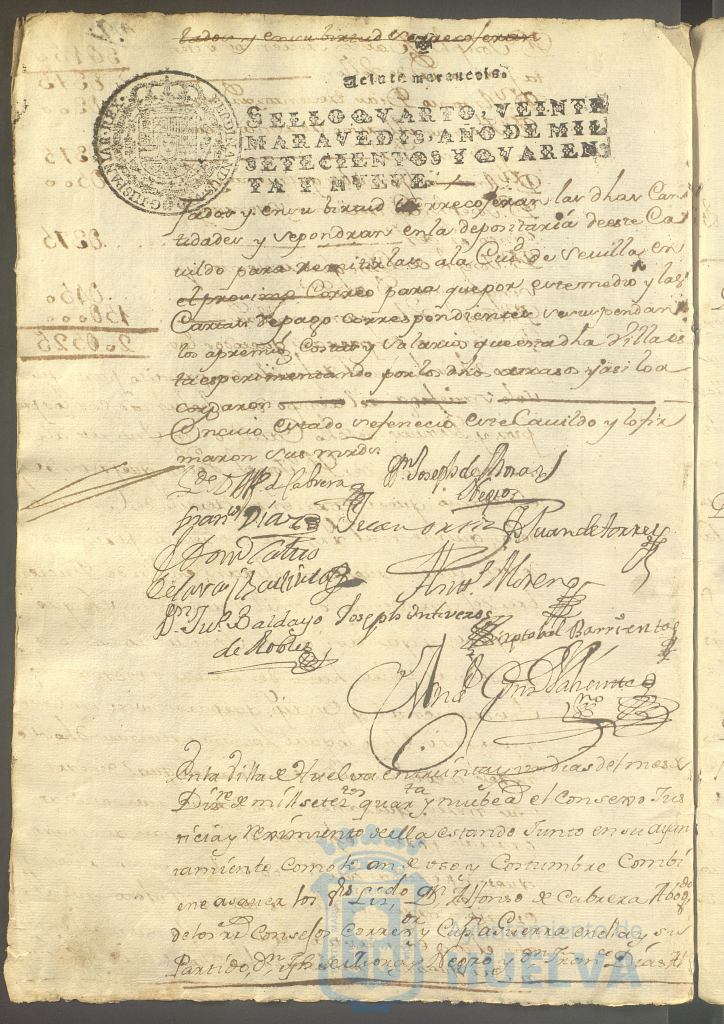 tados y en su birtud se recojeran
Veinte maravedis.
SELLO QVARTO, VEINTE
MARAVEDIS, AÑO DE MIL
SETECIENTOS Y QVAREN
TA Y NUEVE
tados y en su birtud se recojeran las dhas Can
tidades y se pondran en la depositaria de este Ca
vildo para remitirlas a la Ciud. de Sevilla en
el proximo Correo para que por este medio y las
Cartas de pago correspondientes se suspendan
los apremios Costas y Salarios que en dha Villa es
ta esperimentando por los dhos atrasos y asi lo a
cordaron
En cuio estado se fenecio este Cavildo y lo fir
maron sus mrds
Ldo Dn A. de Cabrera
Dn Joseph de Mora y
Negro
Franco Diaz
Juan ortiz
Juan de torres
Anto. Moreno
Dn Ju. Baldayo
de Robles
Joseph
Xptobal Barrientos
En la Villa de Huelva en treinta y un dias del mes de
Dizre de mill setezos quarta y nuebe a el Consexo Jus
ticia y Reximiento de ella estando Junto en su ayun
tamiento Como lo an de uso y Costumbre Combi
ene a saver los sres Lizdo Dn Alfonso de Cabrera Abogdo
de los rs Consejos Correxor y Capn a Guerra en ella y su
Partido, Dn Jph de Mora y Negro y dn Franco Dias Al
Ayuntamiento de
HUELVA